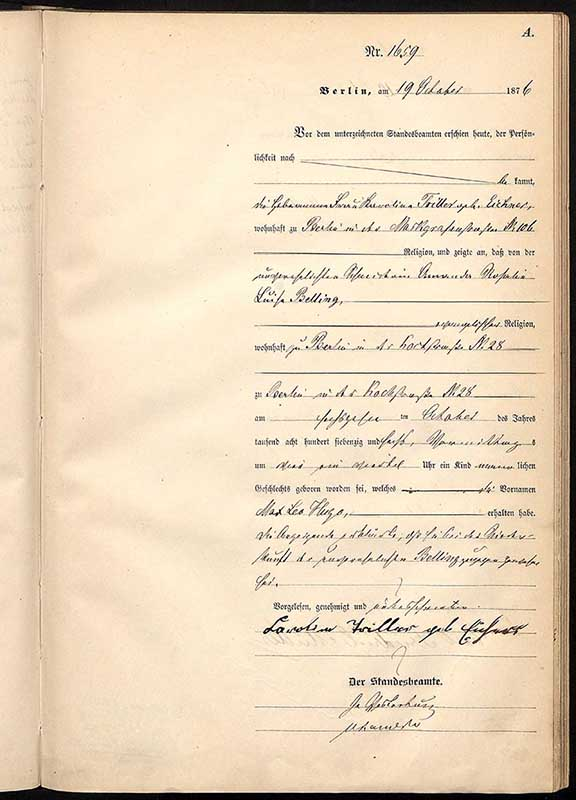 A.
Nr. 1659
Berlin, am 19 October 1876
Vor dem unterzeichneten Standesbeamten erschien heute, der Persön-
lichkeit nach
be kannt,
die Hebamme Frau Karoline Triller geb. Eichner,
wohnhaft zu Berlin in der Markgrafenstrasse N 106
Religion, und zeigte an, daß von der
unverehelichten Schneiderin Amanda Rosalie
Luise Belling,
evangelischer Religion,
wohnhaft zu Berlin in der Kochstraße N 28
zu Berlin in der Kochstraße N 28
am sechszehn ten October des Jahres
tausend acht hundert siebenzig und sechs, Vormittag s
um drei ein viertel Uhr ein Kind männ lichen
Geschlechts geboren worden sei, welches die Vornamen
Max Leo Hugo, erhalten habe.
Die Anzeigende erklärte, daß sie bei der Nieder-
kunft der unverehelichten Belling zugegen gewesen
sei.
Vorgelesen, genehmigt und unterschrieben.
Karoline Triller geb Eichner
Der Standesbeamte.